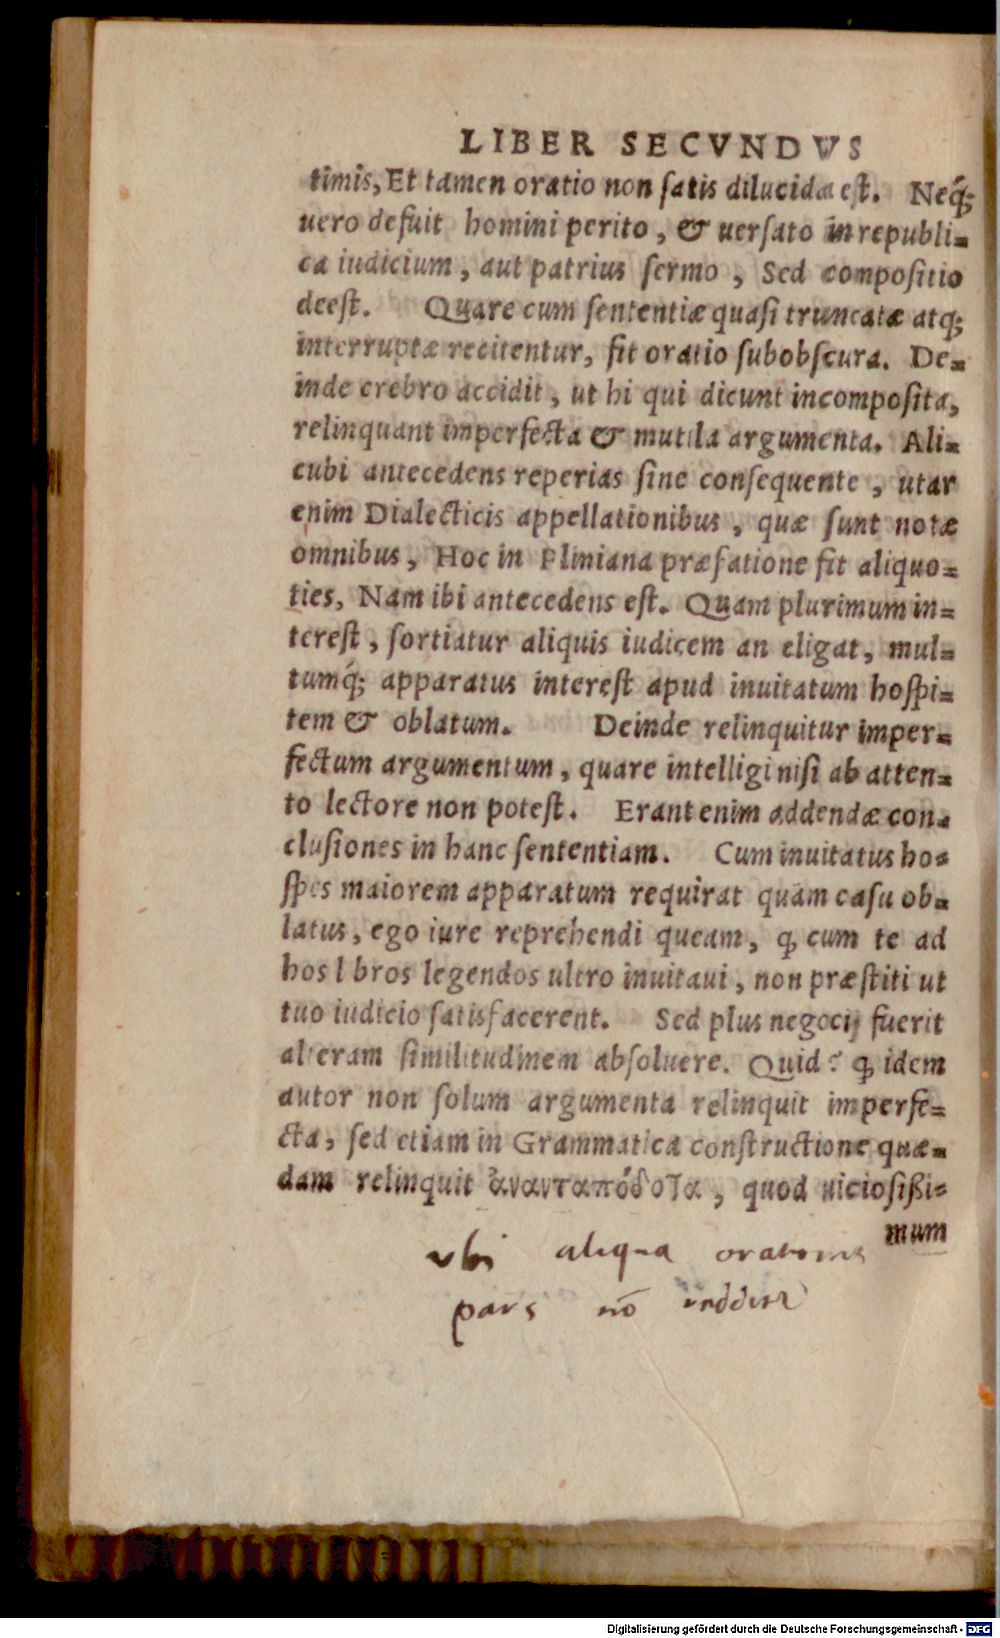 LIBER SECVNDVS
timis, Et tamen oratio non ſatis dilucida eſt. Neq́;
uero defuit homini perito, & uerſato in republi-
ca iudicium, aut patrius ſermo, Sed compoſitio
deeſt. Quare cum ſententiæ quaſi truncatæ atq;
interruptæ recitentur, fit oratio ſubobſcura. De-
inde crebro accidit, ut hi qui dicunt incompoſita,
relinquant imperfecta & mutila argumenta. Ali-
cubi antecedens reperias ſine conſequente, utar
enim Dialecticis appellationibus, quæ ſunt notæ
omnibus, Hoc in Pliniana præfatione fit aliquo-
ties, Nam ibi antecedens eſt. Quam plurimum in-
tereſt, ſortiatur aliquis iudicem an eligat, mul-
tumq́; apparatus intereſt apud inuitatum hoſpi-
tem & oblatum. Deinde relinquitur imper-
fectum argumentum, quare intelligi niſi ab atten-
to lectore non poteſt. Erant enim addendæ con-
cluſiones in hanc ſententiam. Cum inuitatus ho-
ſpes maiorem apparatum requirat quàm caſu ob-
latus, ego iure reprehendi queam, ꝙ cum te ad
hos l bros legendos ultro inuitaui, non præſtiti ut
tuo iudicio ſatisfacerent. Sed plus negocij fuerit
alteram ſimilitudinem abſoluere. Quid? ꝙ idem
autor non ſolum argumenta relinquit imperfe-
cta, ſed etiam in Grammatica conſtructione quæ-
dam relinquit ἀνανταπόδοτα, quod uicioſißi-
mum
vbi aliqua orationis
pars nō redditur
Digitalisierung gefördert durch die Deutsche Forschungsgemeinschaft - DFG